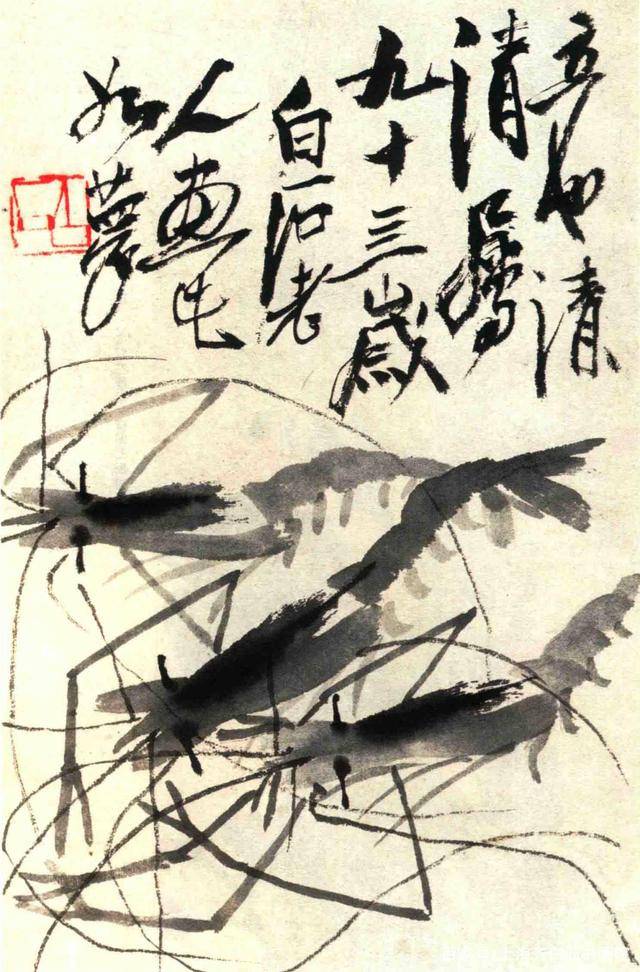 立清
清屬
九十三歲
白石老
人畫也
如夢